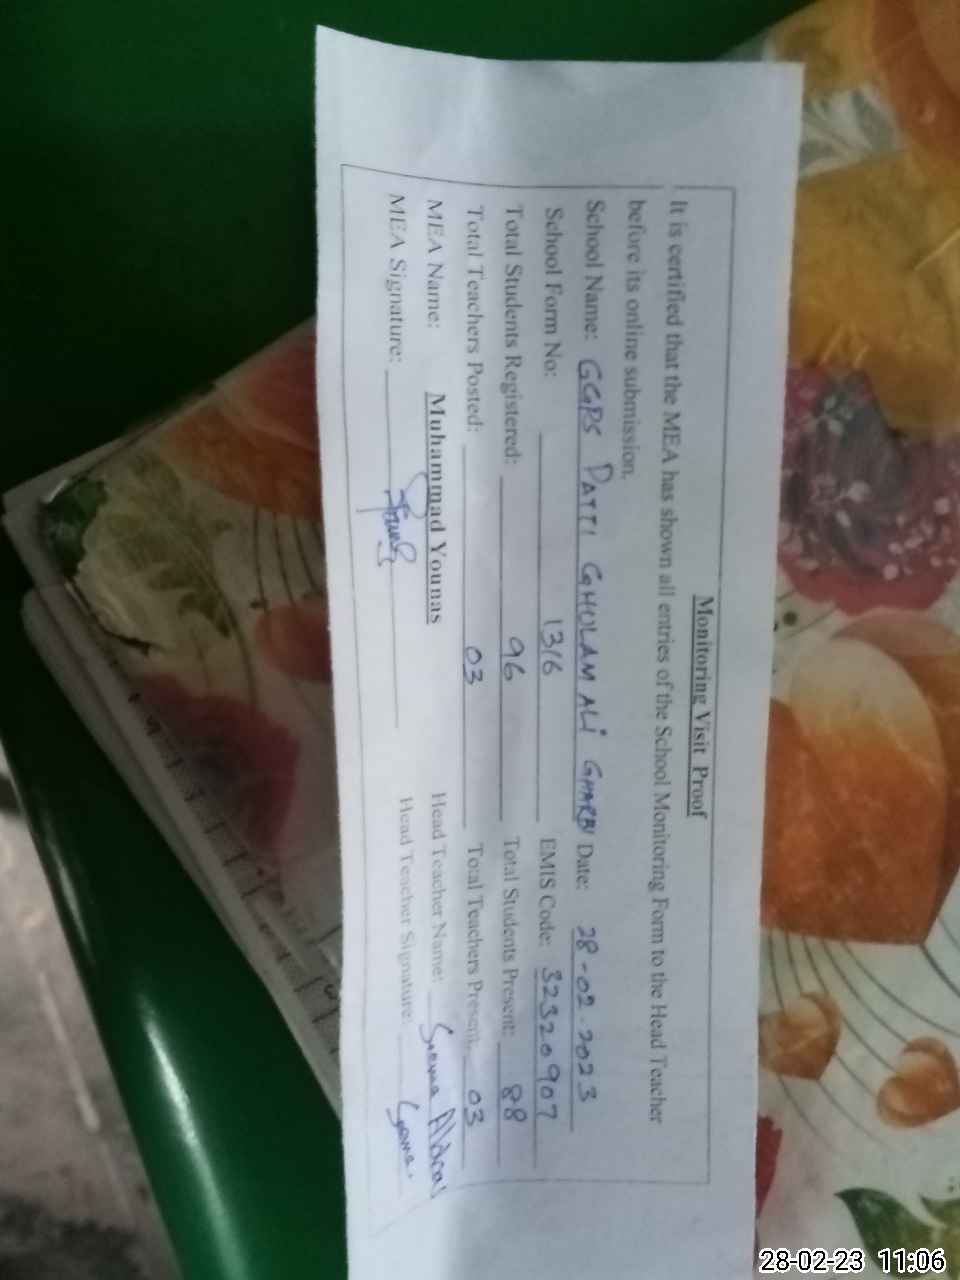 Monitoring Visit Proof
It is certified that the MEA has shown all entries of the School Monitoring Form to the Head Teacher
before its online submission.
School Name: GGPS PATTI GHULAM ALI GHARBI Date: 28-02-2023
School Form No: 1316 EMIS Code: 32320907
Total Students Registered: 96 Total Students Present: 88
Total Teachers Posted: 03 Total Teachers Present: 03
MEA Name: Muhammad Younas Head Teacher Name:
MEA Signature: Head Teacher Signature:
28-02-23 11:06